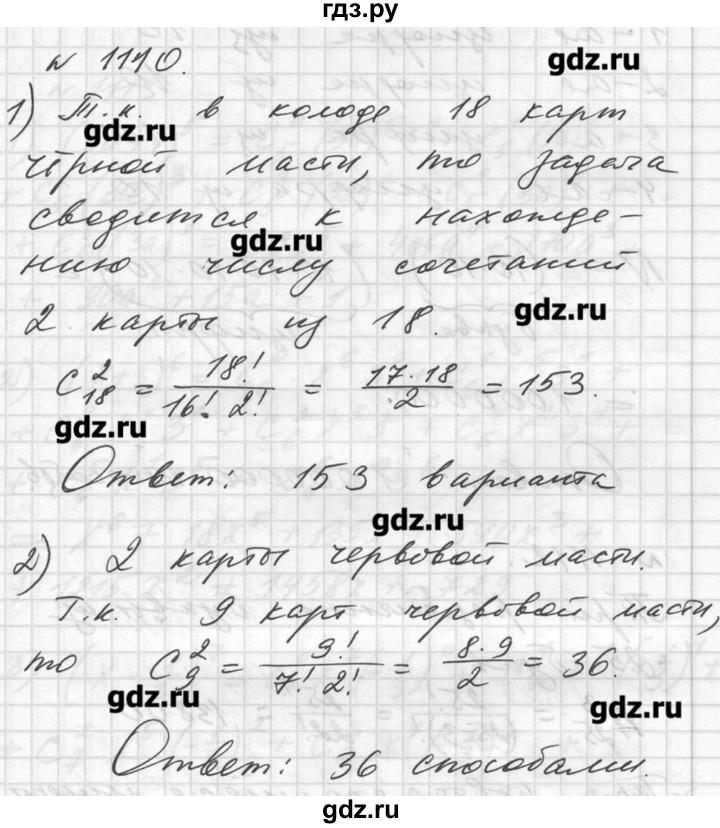 гдз.ру
№ 1110.
gdz.ru
1) Т.к. в колоде 18 карт
gdz.ru
чёрной масти, то задача
сводится к нахожде-
gdz.ru
нию числу сочетаний
2 карты из 18.
gdz.ru
C₁₈² = 18!/(16! 2!) = (17·18)/2 = 153.
gdz.ru
Ответ: 153 варианта
gdz.ru
2) 2 карты червовой масти.
Т.к. 9 карт червовой масти,
то C₉² = 9!/(7! 2!) = (8·9)/2 = 36.
gdz.ru
gdz.ru
Ответ: 36 способами.
gdz.ru